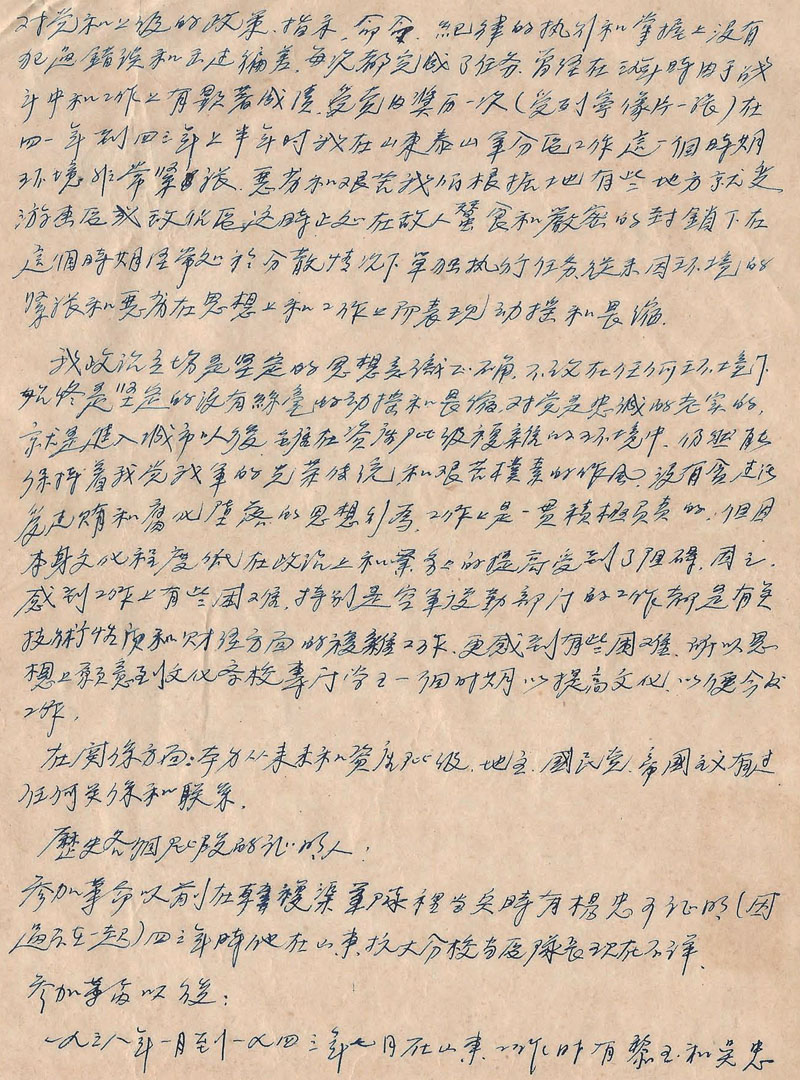 对党和上级的政策、指示、命令、纪律的执行和掌握上没有
犯過錯误和玉过偏差，每次都完成了任务。曾经在三八時由于战
斗中和工作上有顯著成绩，受党内奖励一次（受列寧像片一張）在
四一年到四三年上半年时我在山東泰山军分區工作，這一個時期
环境非常緊張、惡劣和艰苦我们根据地有些地方就变
游击區或敌伪區，这時正处在敌人蠶食和嚴密的封鎖下在
這個時期经常处於分散情况下单独执行任务從未因环境的
緊張和惡劣在思想上和工作上所表现动摇和畏缩。
我政治立场是坚定的思想意識正确，不论在任何环境下
始终是坚定的没有絲毫的动摇和畏缩，对党是忠誠的老实的，
就是進入城市以後，虽在资产阶级複雜的环境中，仍然能
保持着我党我军的光荣传统和艰苦樸素的作風，没有贪过污
受过贿和腐化堕落的思想行為，工作上是一貫積極负责的，但因
本身文化程度低在政治上和業务上的提高受到了阻碍，因之，
感到工作上有些困难，特别是空軍後勤部门的工作都是有关
技術性质和财经方面的複雜工作，更感到有些困难，所以思
想上願意到文化学校專门学习一個时期以提高文化，以便今后
工作。
在関係方面：本身从来未和資產阶级、地主、國民党、帝國主义有过
任何关係和联系。
歷史各個阶段的证明人：
参加革命以前在韓復渠軍隊裡当兵時有楊忠可证明（因
過去在一起）四三年時他在山東抗大分校当區隊长现在不详。
参加革命以後：
一九三八年一月到一九四三年七月在山東工作时有黎玉和吴忠